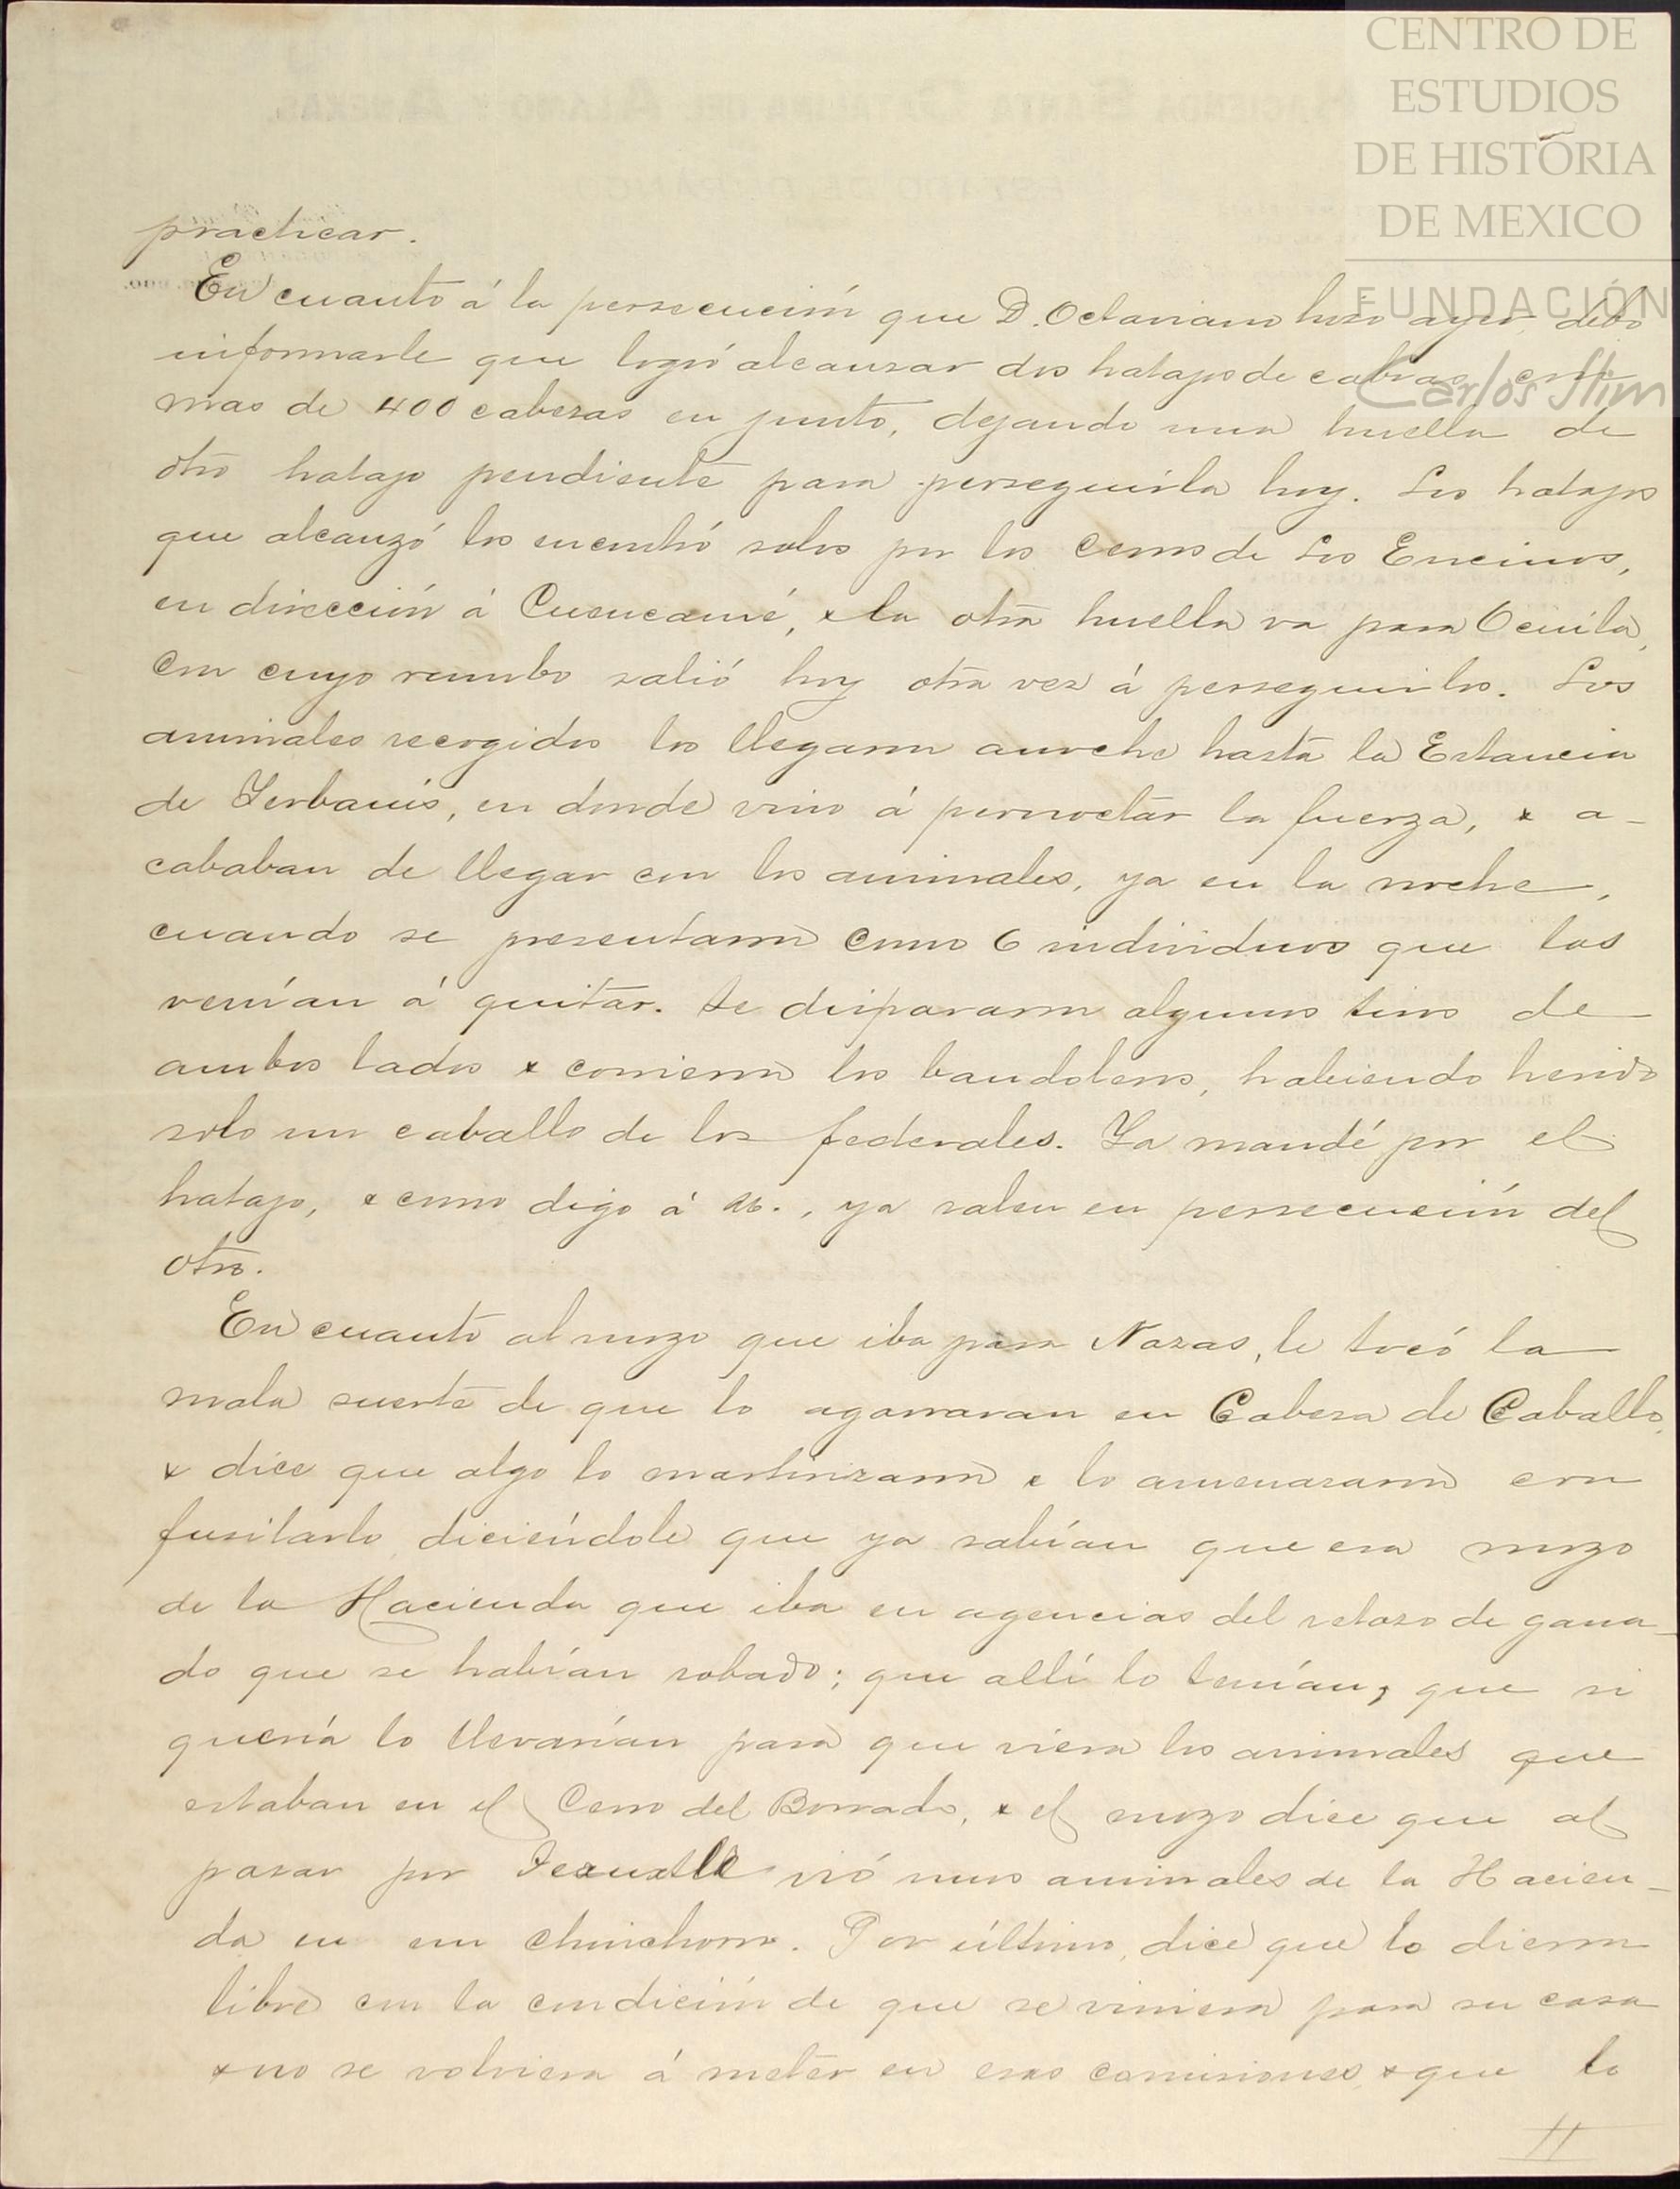 CENTRO DE
ESTUDIOS
DE HISTORIA
DE MEXICO
FUNDACIÓN
Carlos Slim
practicar.
En cuanto á la persecución que D. Octaviano hizo ayer, debo
informarle que logró alcanzar dos hatajos de cabras, con
mas de 400 cabezas en junto, dejando una huella de
otro hatajo pendiente para perseguirla hoy. Los hatajos
que alcanzó los encontró solos por los Cerros de Los Encinos,
en dirección á Cuencamé, & la otra huella va para Ocuila,
con cuyo rumbo salió hoy otra vez á perseguirlos. Los
animales recogidos los llegaron anoche hasta la Estancia
de Yerbanis, en donde vino á pernoctar la fuerza, & a-
cababan de llegar con los animales, ya en la noche,
cuando se presentaron como 6 individuos que los
venían á quitar. Se dispararon algunos tiros de
ambos lados & corrieron los bandoleros, habiendo herido
solo un caballo de los federales. Ya mandé por el
hatajo, & como digo á Ud., ya salen en persecución del
otro.
En cuanto al mozo que iba para Nazas, le tocó la
mala suerte de que lo agarraran en Cabeza de Caballo,
& dice que algo lo martirizaron & lo amenazaron con
fusilarlo, diciéndole que ya sabían que era mozo
de la Hacienda que iba en agencias del retazo de gana-
do que se habían robado; que allí lo tenían, que si
quería lo llevarían para que viera los animales que
estaban en el Cerro del Borrado, & el mozo dice que al
pasar por vió unos animales de la Hacien-
da en un chinchorro. Por último, dice que lo dieron
libre con la condición de que se viniera para su casa
& no se volviera á meter en esas comisiones, & que lo
II